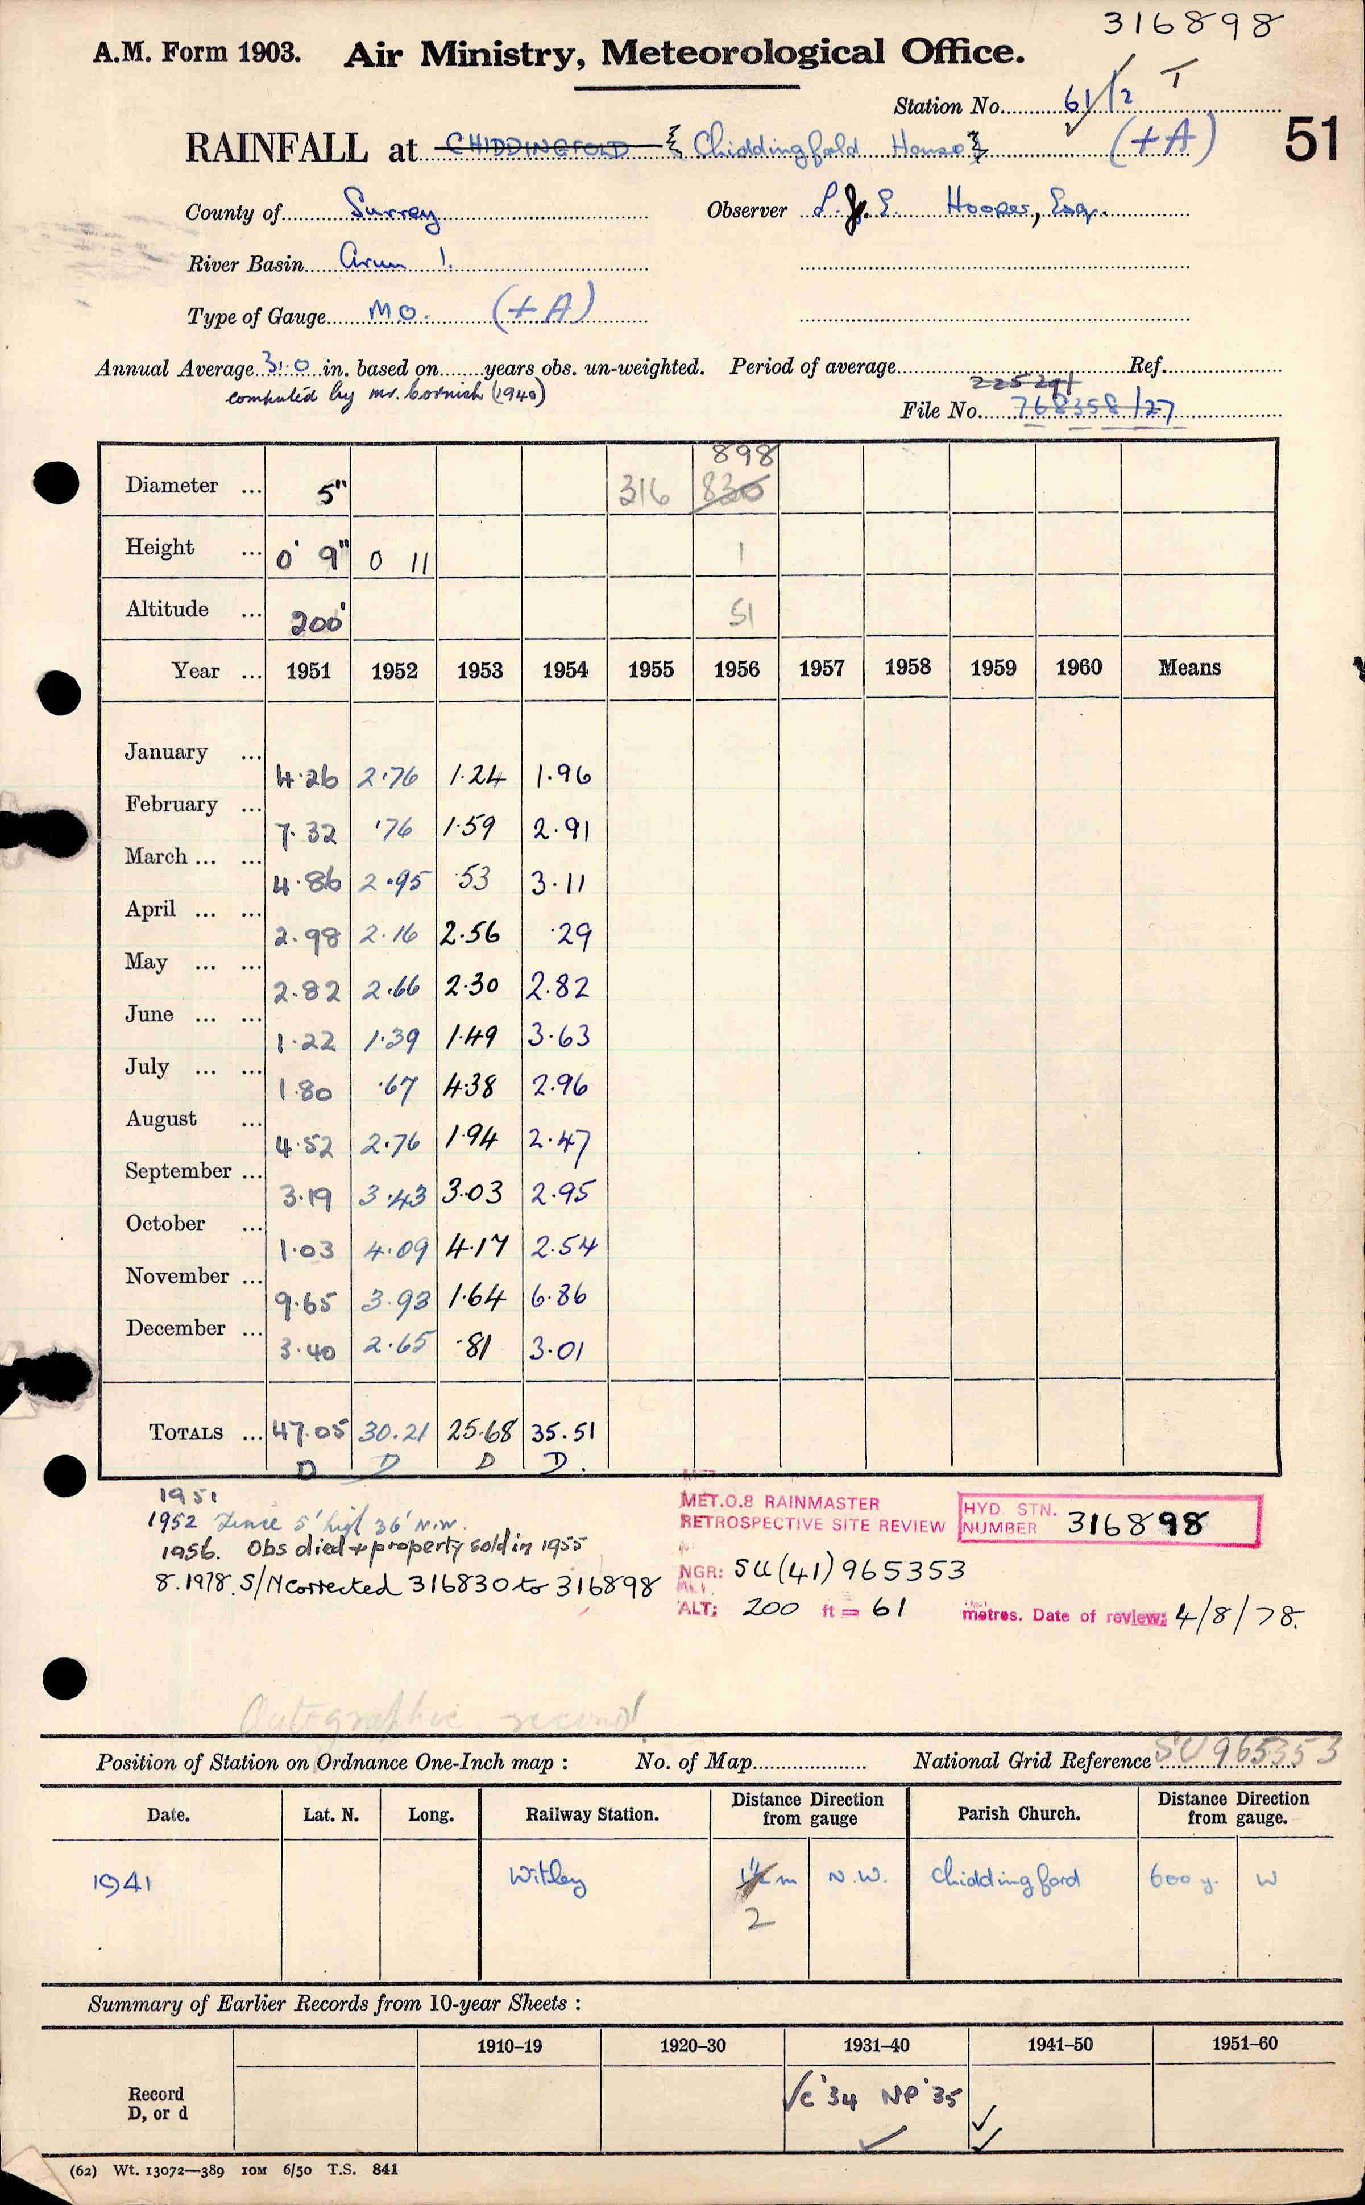 316898
A.M. Form 1903. Air Ministry, Meteorological Office.
Station No. 61/2 T
RAINFALL at CHIDDINGFOLD { Chiddingfold House } (+A) 51
County of Surrey Observer L. J. E. Hooper, Esq.
River Basin Arun 1.
Type of Gauge MO. (+A)
Annual Average 31.0 in. based on years obs. un-weighted. Period of average Ref.
computed by Mr. Cornish (1940)
File No. 768358/27
898
Diameter ... 5" 316 830
Height ... 0' 9" 0 11 1
Altitude ... 200' 51
Year ... 1951 1952 1953 1954 1955 1956 1957 1958 1959 1960 Means
January ... 4.26 2.76 1.24 1.96
February ... 7.32 .76 1.59 2.91
March ... ... 4.86 2.95 .53 3.11
April ... ... 2.98 2.16 2.56 .29
May ... ... 2.82 2.66 2.30 2.82
June ... ... 1.22 1.39 1.49 3.63
July ... ... 1.80 .67 4.38 2.96
August ... 4.52 2.76 1.94 2.47
September ... 3.19 3.43 3.03 2.95
October ... 1.03 4.09 4.17 2.54
November ... 9.65 3.93 1.64 6.86
December ... 3.40 2.65 .81 3.01
TOTALS ... 47.05 30.21 25.68 35.51
D D D D.
1951
1952 Fence 5' high 36' N.W.
1956. Obs died + property sold in 1955
8.1978. S/N corrected 316830 to 316898
MET.O.8 RAINMASTER
RETROSPECTIVE SITE REVIEW
HYD. STN. NUMBER 316898
NGR: SU (41) 965353
ALT: 200 ft = 61 metres. Date of review: 4/8/78.
Autographic record
Position of Station on Ordnance One-Inch map : No. of Map National Grid Reference SU 965353
Date. Lat. N. Long. Railway Station. Distance Direction from gauge Parish Church. Distance Direction from gauge.
1941 Witley 1½ m N.W. Chiddingfold 600 y. W
2
Summary of Earlier Records from 10-year Sheets :
1910–19 1920–30 1931–40 1941–50 1951–60
Record
D, or d
√c '34 NP '35
(62) Wt. 13072—389 10M 6/50 T.S. 841